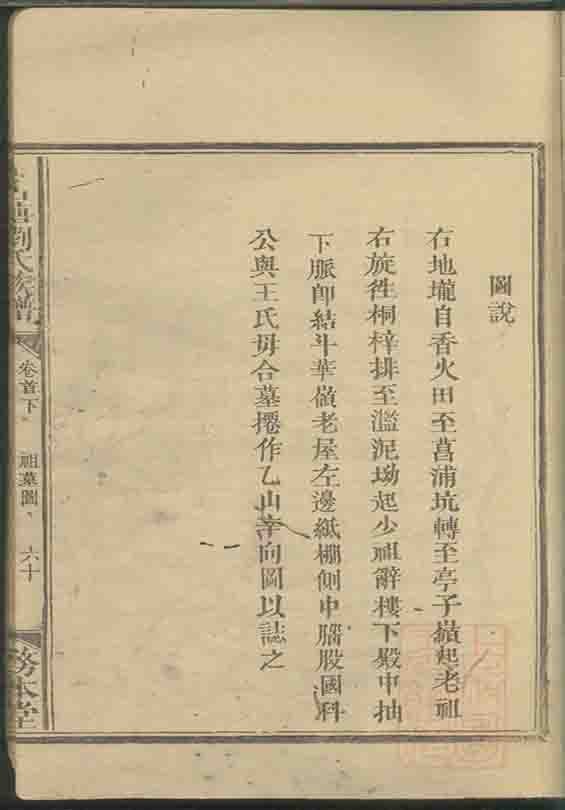 圖說
右地壠自香火田至菖浦坑轉至亭子嶺起老祖
右旋徃桐梓排至濫泥坳起少祖辭樓下殿中抽
下脈卽結斗華嶺老屋左邊紙棚側中腦股國科
公與王氏毋合墓攑作乙山辛向圖以誌之
劉氏族譜
卷首下
祖墓圖
六十
務本堂